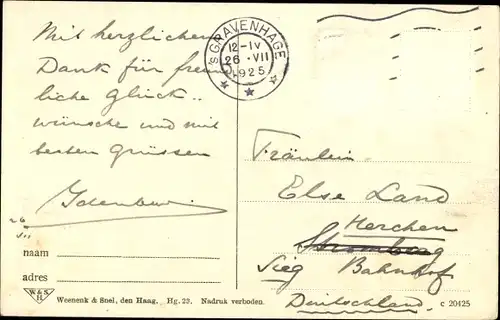 Mit herzlichem
Dank für freund
liche Glück..
wünsche und mit
besten Grüssen
26
VII
naam
adres
W & S
H
Weenenk & Snel, den Haag. Hg. 23. Nadruk verboden.
'S GRAVENHAGE
12-IV
26 .VII
1925
Fräulein
Else Land
Herchen
Stromberg
Sieg Bahnhof
Deutschland.
c 20425